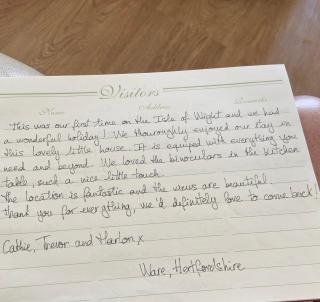 Visitors
Name Address Remarks
This was our first time on the Isle of Wight and we had
a wonderful holiday! We thouroughly enjoyed our stay in
this lovely little house. It is equiped with everything you
need and beyond. We loved the binoculars in the kitchen
table, such a nice little touch.
The location is fantastic and the views are beautiful.
Thank you for everything, we'd definitely love to come back!
Cathie, Trevor and Harlon x
Ware, Hertfordshire